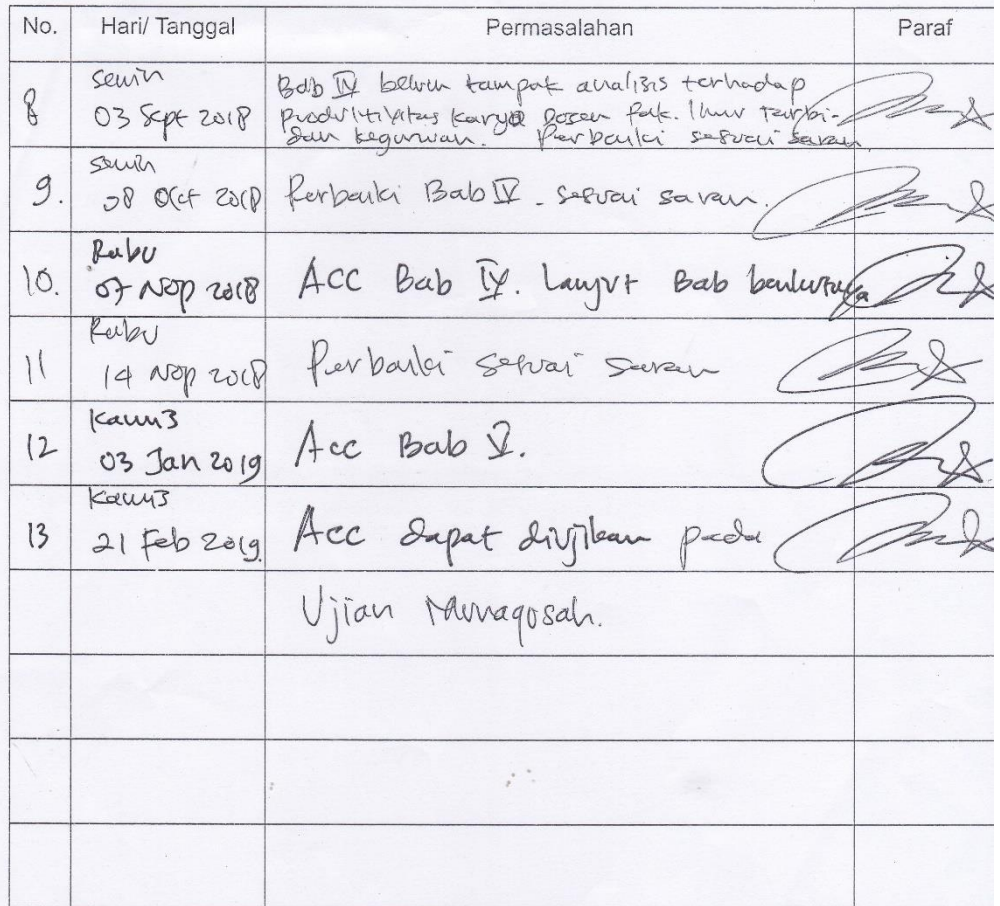 No. Hari/ Tanggal Permasalahan Paraf
8 senin 03 Sept 2018 Bab IV belum tampak analisis terhadap
produktivitas karya Dosen Fak. Ilmu Tarbi-
dan keguruan. Perbaiki sesuai saran
9. senin 08 Oct 2018 Perbaiki Bab IV. sesuai saran.
10. Rabu 07 Nop 2018 ACC Bab IV. Lanjut Bab berikutnya
11 Rabu 14 Nop 2018 Perbaiki sesuai saran
12 Kamis 03 Jan 2019 Acc Bab V.
13 Kamis 21 Feb 2019. Acc dapat diujikan pada
Ujian Munaqosah.